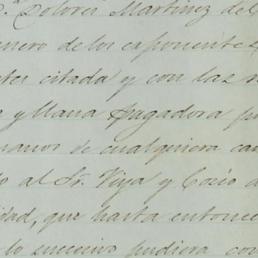 Dolores Martinez de
de los esponente
citada y con las
y llana pagadora
manos de cualquiera
al Sr. Viya y Cosio
que hasta entonce
lo sucesivo pudiera